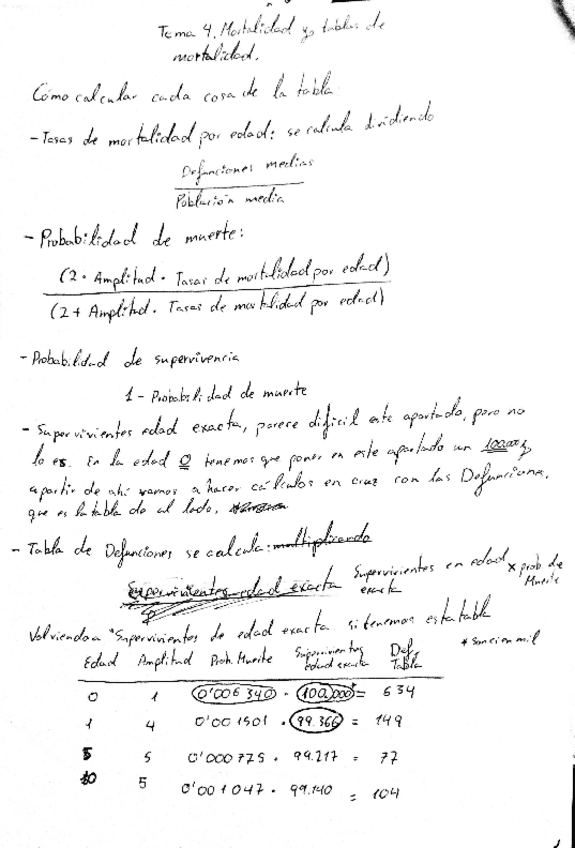 Tema 4. Mortalidad y tablas de
mortalidad.
Cómo calcular cada cosa de la tabla
- Tasas de mortalidad por edad: se calcula dividiendo
Defunciones medias
Población media
- Probabilidad de muerte:
(2 · Amplitud · Tasas de mortalidad por edad)
(2 + Amplitud · Tasas de mortalidad por edad)
- Probabilidad de supervivencia
1 - Probabilidad de muerte
- Supervivientes edad exacta, parece dificil este apartado, pero no
lo es. En la edad 0 tenemos que poner en este apartado un 100.000 y
apartir de ahí vamos a hacer cálculos en cruz con las Defunciones,
que es la tabla de al lado.
- Tabla de Defunciones se calcula: multiplicando
Supervivientes edad exacta Supervivientes en edad exacta x prob de Muerte
Volviendo a "Supervivientes de edad exacta si tenemos esta tabla
* son cien mil
Edad Amplitud Prob. Muerte Supervivientes edad exacta Def. Tabla
0 1 0'006340 · 100.000* = 634
1 4 0'001501 · 99.366 = 149
5 5 0'000775 · 99.217 = 77
10 5 0'001047 · 99.140 = 104